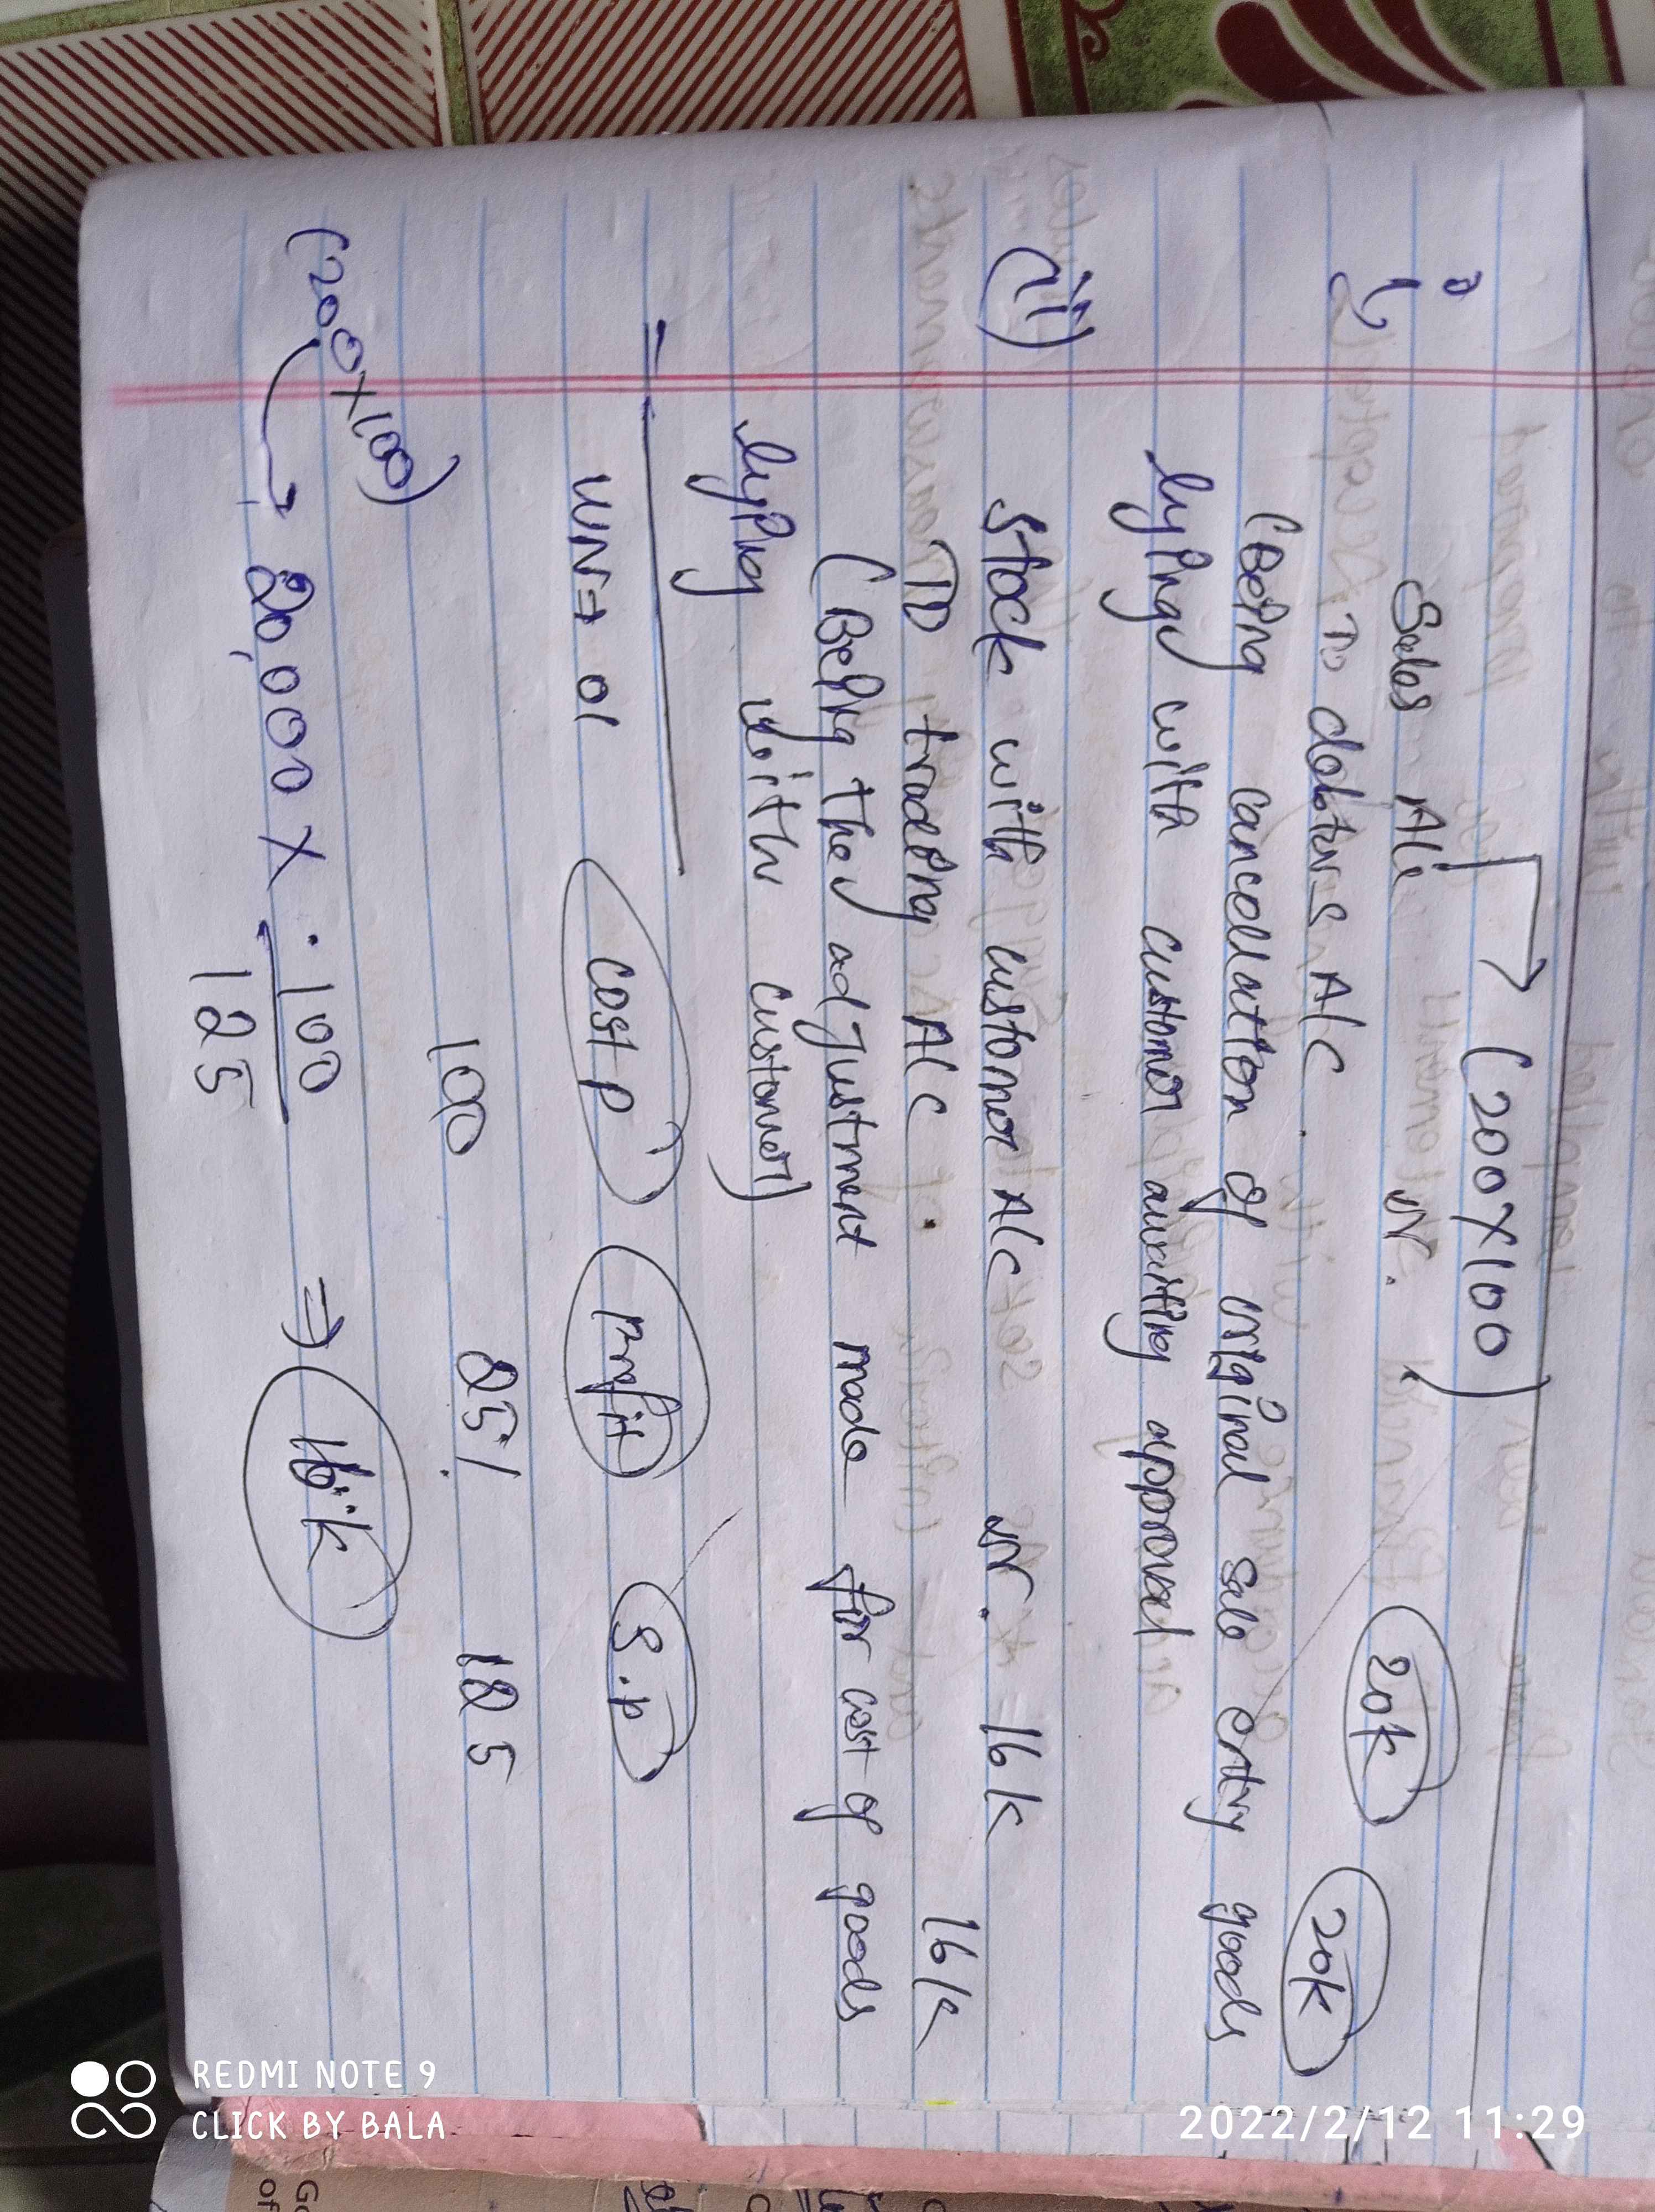 (200×100)
i Sales A/c Dr. 20k
To debtors A/c 20k
(Being cancellation of original sale entry goods
lying with customer awaiting approval
(ii) Stock with customer A/c Dr. = 16k
To trading A/c 16k
(Being the adjustment made for cost of goods
lying with customer)
WN→ 01 Cost P Profit S.P
100 25% 125
(200×100)
20,000 × 100 ⇒ 16k
125
REDMI NOTE 9
CLICK BY BALA
2022/2/12 11:29